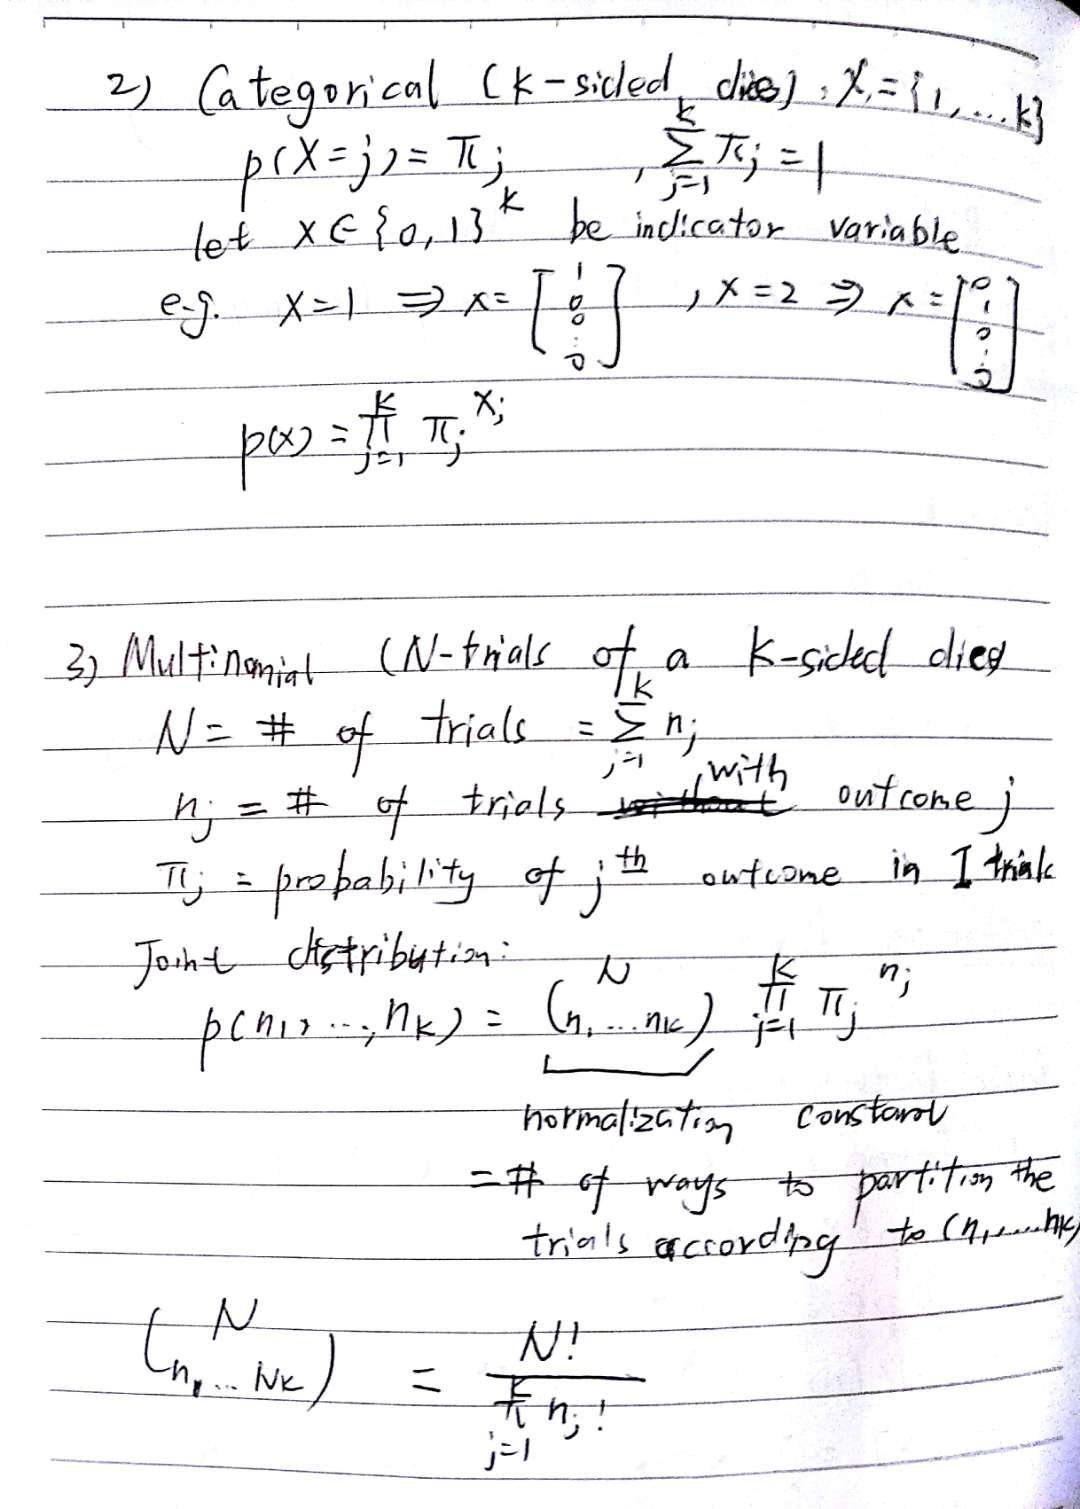 2) Categorical (k-sided dies), X = {1, ... k}
p(X=j) = πj , Σ_{j=1}^{k} πj = 1
let x ∈ {0,1}^k be indicator variable
e.g. X=1 ⇒ x = [1 0 0 ⋮ 0] , X=2 ⇒ x = [0 1 0 ⋮ 0]
p(x) = ∏_{j=1}^{k} πj^{xj}
3) Multinomial (N-trials of a k-sided dies
N = # of trials = Σ_{j=1}^{k} nj
nj = # of trials with outcome j
πj = probability of j^th outcome in I trials
Joint distribution:
p(n1, ..., nk) = (N n1 ... nk) ∏_{j=1}^{k} πj^{nj}
normalization constant
= # of ways to partition the
trials according to (n1, ... nk)
(N n1, ... Nk) = N! / ∏_{j=1}^{k} nj!